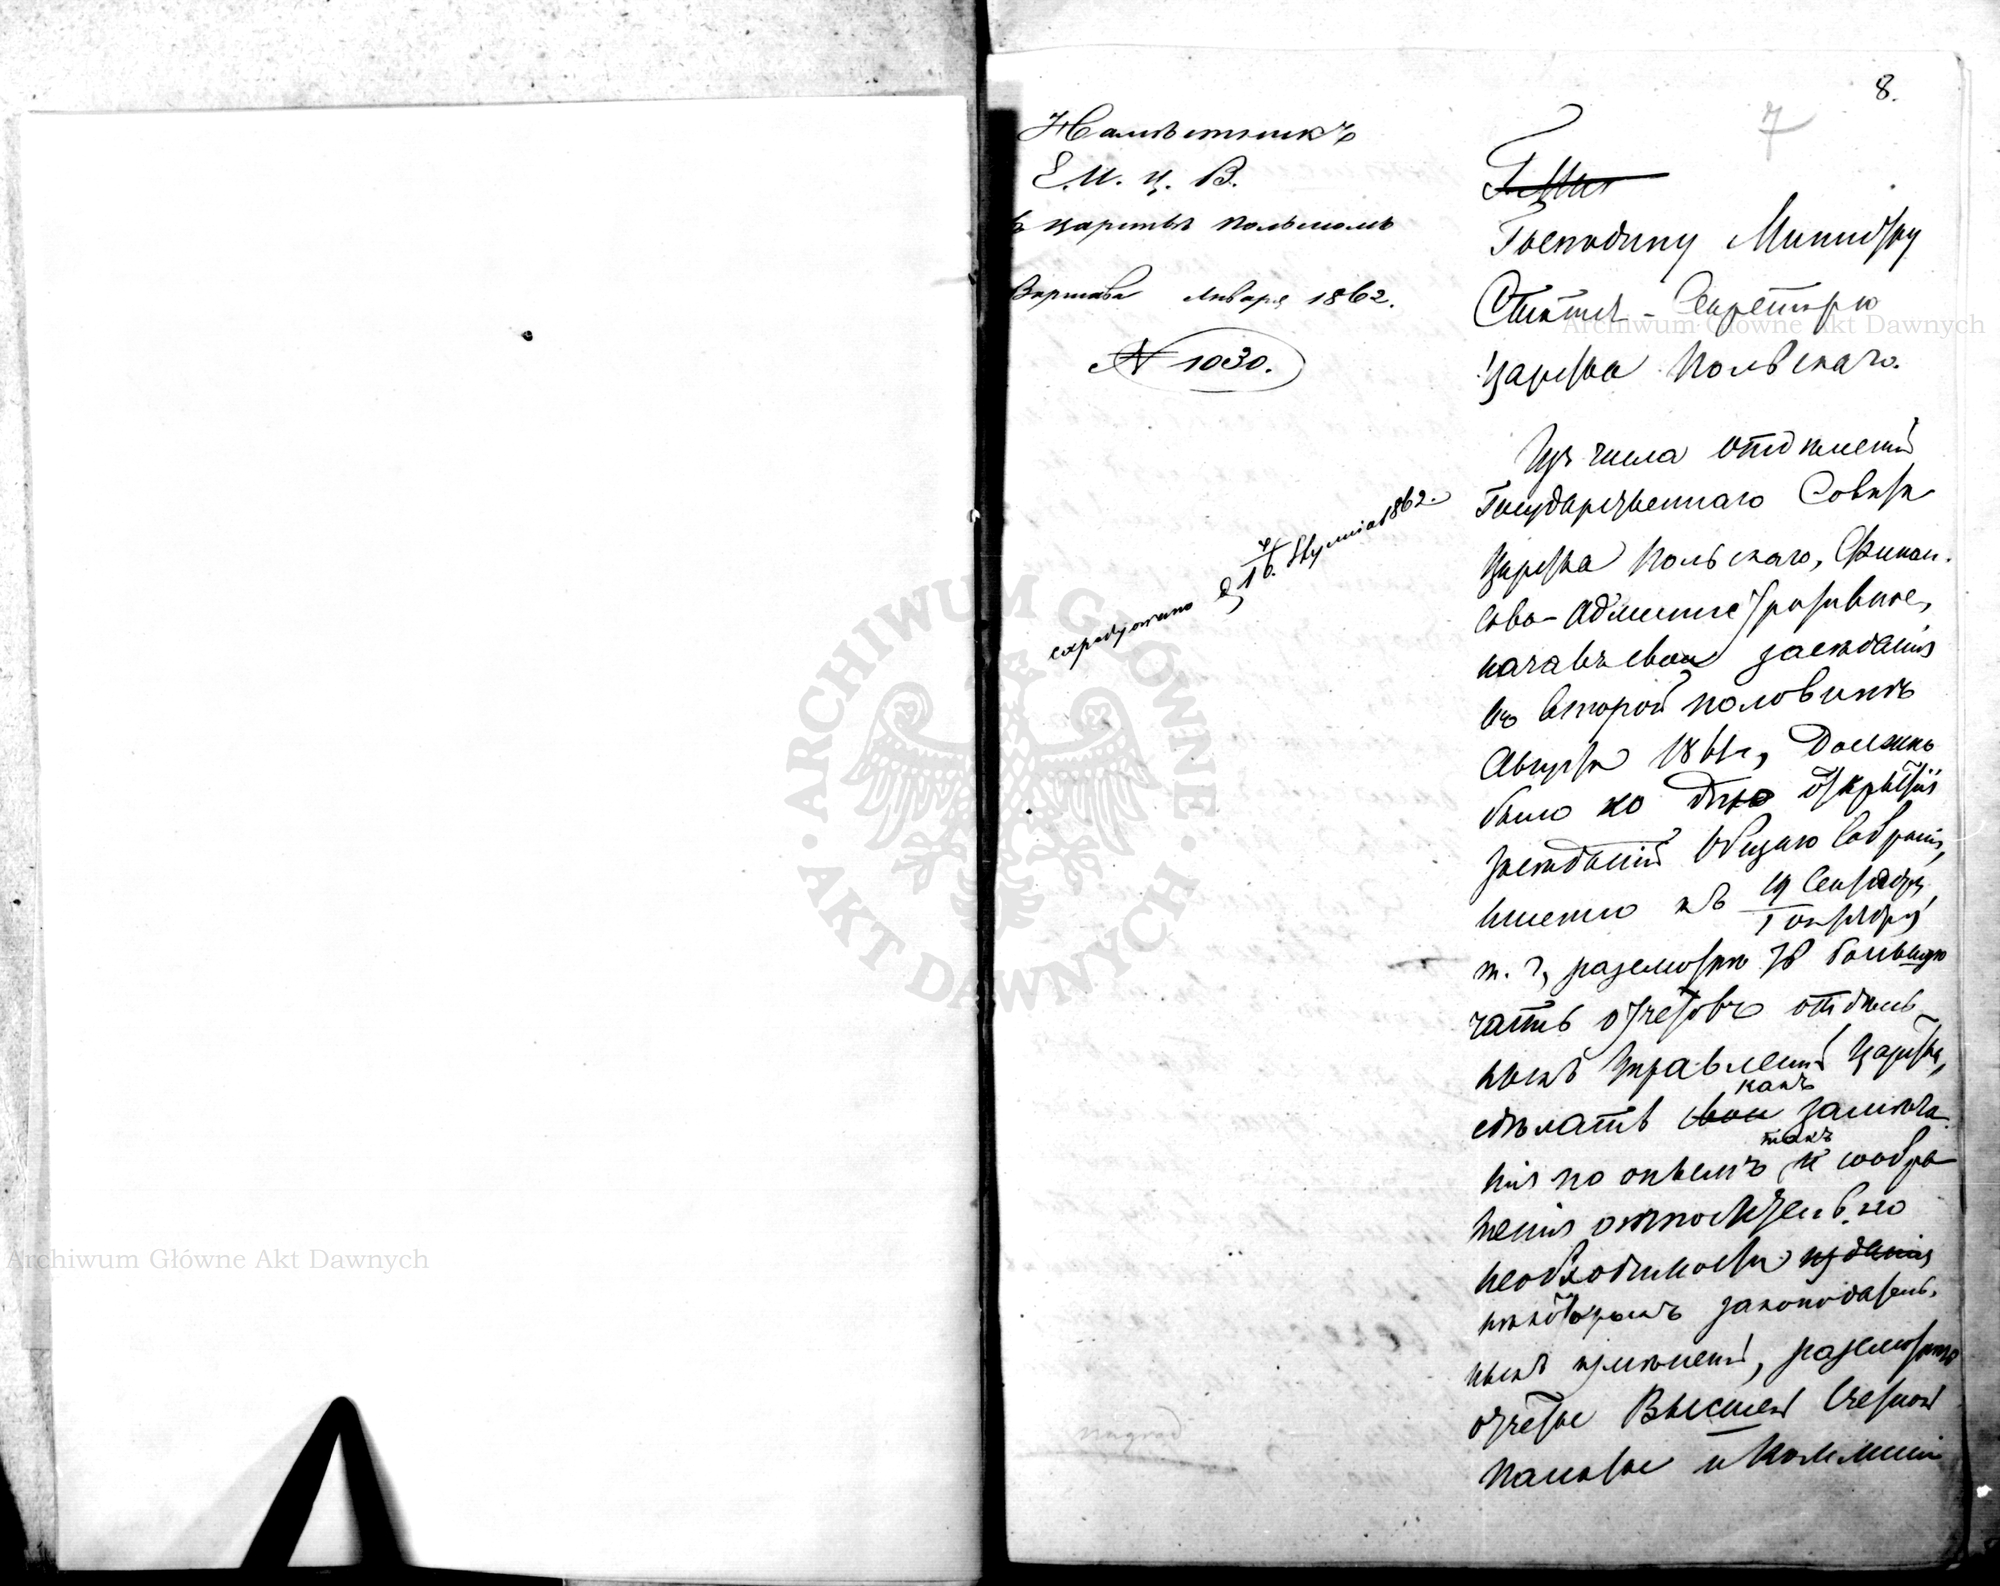 8.
7
Намѣстникъ
Е. И. Ц. В.
въ Царствѣ Польскомъ
Варшава Января 1862.
N 1030.
expedyowano d. 4/16. Stycznia 1862.
Господину Министру
Статсъ-Секретарю
Царства Польскаго.
Изъ числа отдѣленій
Государственнаго Совѣта
Царства Польскаго, Финан-
сово-Административное,
начавъ свои засѣданія
во второй половинѣ
Августа 1861 г., должно
было ко дню открытія
засѣданій Общаго Собранія,
именно къ 19 Сентября / 1 Октября
т. г., разсмотрѣть большую
часть отчетовъ отдѣль-
ныхъ Управленій Царства,
сдѣлать свои какъ замѣча-
нія по онымъ такъ и сообра-
женія относительно
необходимости изданія
нѣкоторыхъ законодатель-
ныхъ измѣненій, разсмотрѣть
отчеты Высшей Счетной
Палаты и Коммисій
nagrod
Archiwum Główne Akt Dawnych
Archiwum Główne Akt Dawnych
ARCHIWUM GŁÓWNE · AKT DAWNYCH ·